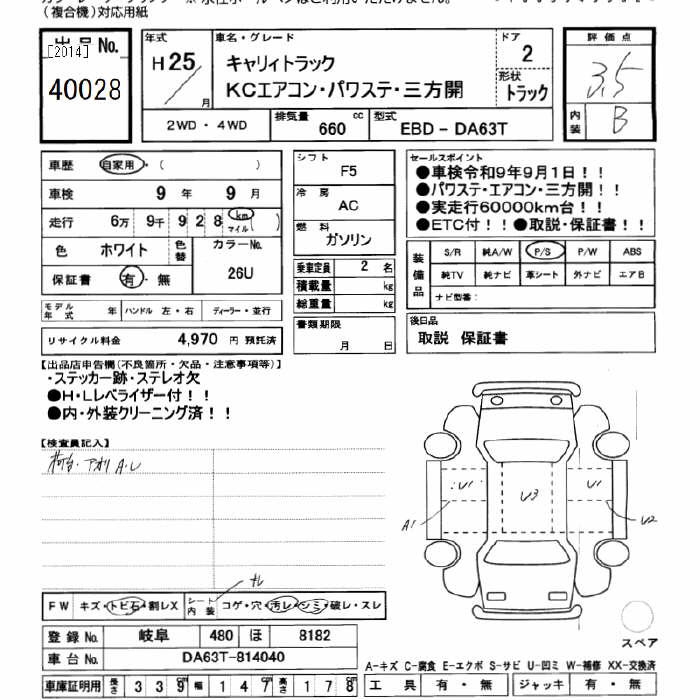 (複合機)対応用紙
出品No.
[2014]
40028
年式
H25/
月
車名・グレード
キャリィトラック
KCエアコン・パワステ・三方開
ドア
2
形状
トラック
評価点
3.5
内装
B
2WD・4WD
排気量
660
cc
型式
EBD-DA63T
車歴
自家用・(　　)
車検
9 年 9 月
走行
6万 9千 9 2 8
km
マイル
( )
色
ホワイト
色替
カラーNo.
26U
保証書
有・無
モデル年式
年
ハンドル 左・右
ディーラー・並行
リサイクル料金
4,970 円 預託済
シフト
F5
冷房
AC
燃料
ガソリン
乗車定員
2 名
積載量
kg
総重量
kg
書類期限
月 日
セールスポイント
●車検令和9年9月1日!!
●パワステ・エアコン・三方開!!
●実走行60000km台!!
●ETC付!!●取説・保証書!!
装備品
S/R 純A/W P/S P/W ABS
純TV 純ナビ 革シート 外ナビ エアB
ナビ型番:
後日品
取説 保証書
【出品店申告欄(不良箇所・欠品・注意事項等)】
・ステッカー跡・ステレオ欠
●H・Lレベライザー付!!
●内・外装クリーニング済!!
【検査員記入】
荷台・アオリ A・U
U1
U3
U1
A1
U2
ナレ
FW
キズ・トビ石・割レX
シート内装
コゲ・穴・汚レ・シミ・破レ・スレ
スペア
登録No.
岐阜 480 ほ 8182
車台No.
DA63T-814040
車庫証明用
長さ 3 3 9
幅 1 4 7
高さ 1 7 8
A-キズ C-腐食 E-エクボ S-サビ U-凹ミ W-補修 XX-交換済
工具 有・無
ジャッキ 有・無